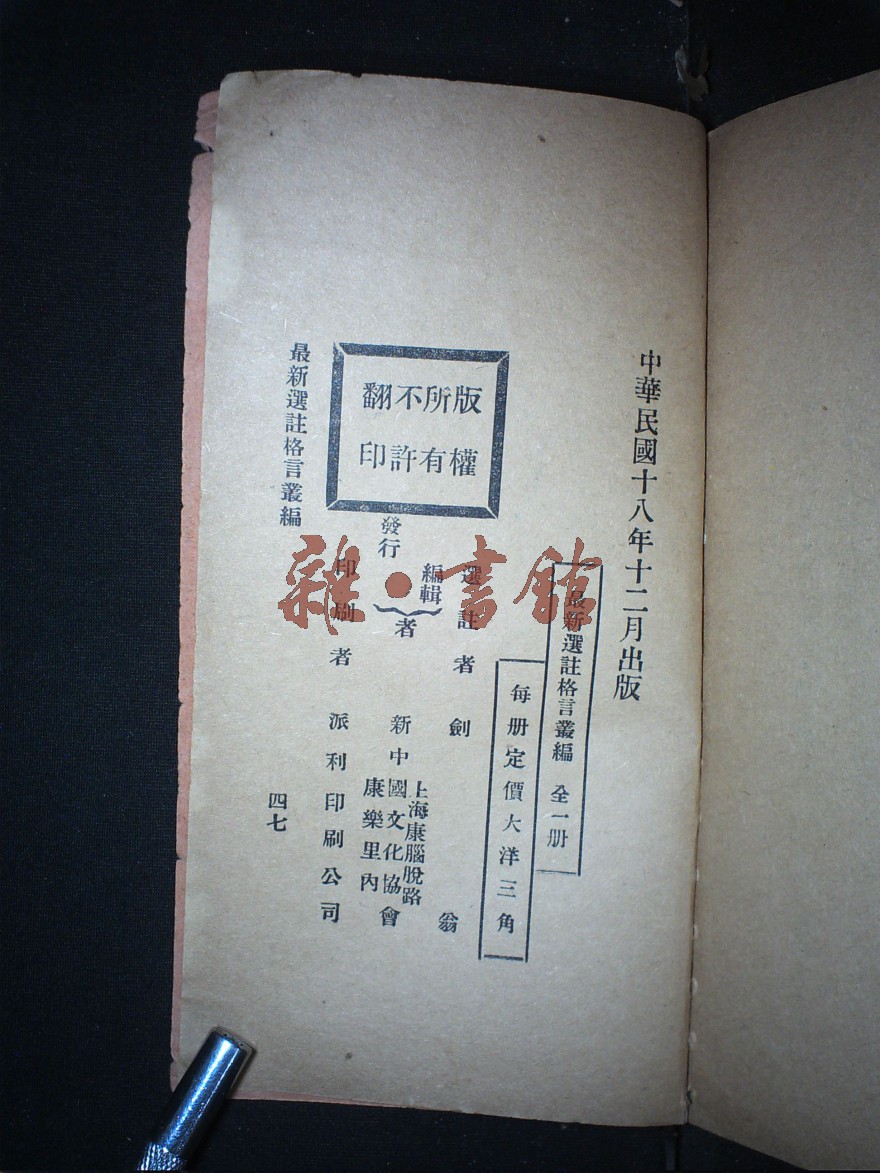 中華民國十八年十二月出版
最新選註格言叢編 全一册
每册定價大洋三角
版權所有不許翻印
選註者 劍翁
編輯發行者 新中國文化協會
上海康腦脫路
康樂里內
印刷者 派利印刷公司
最新選註格言叢編
四七
雜·書館